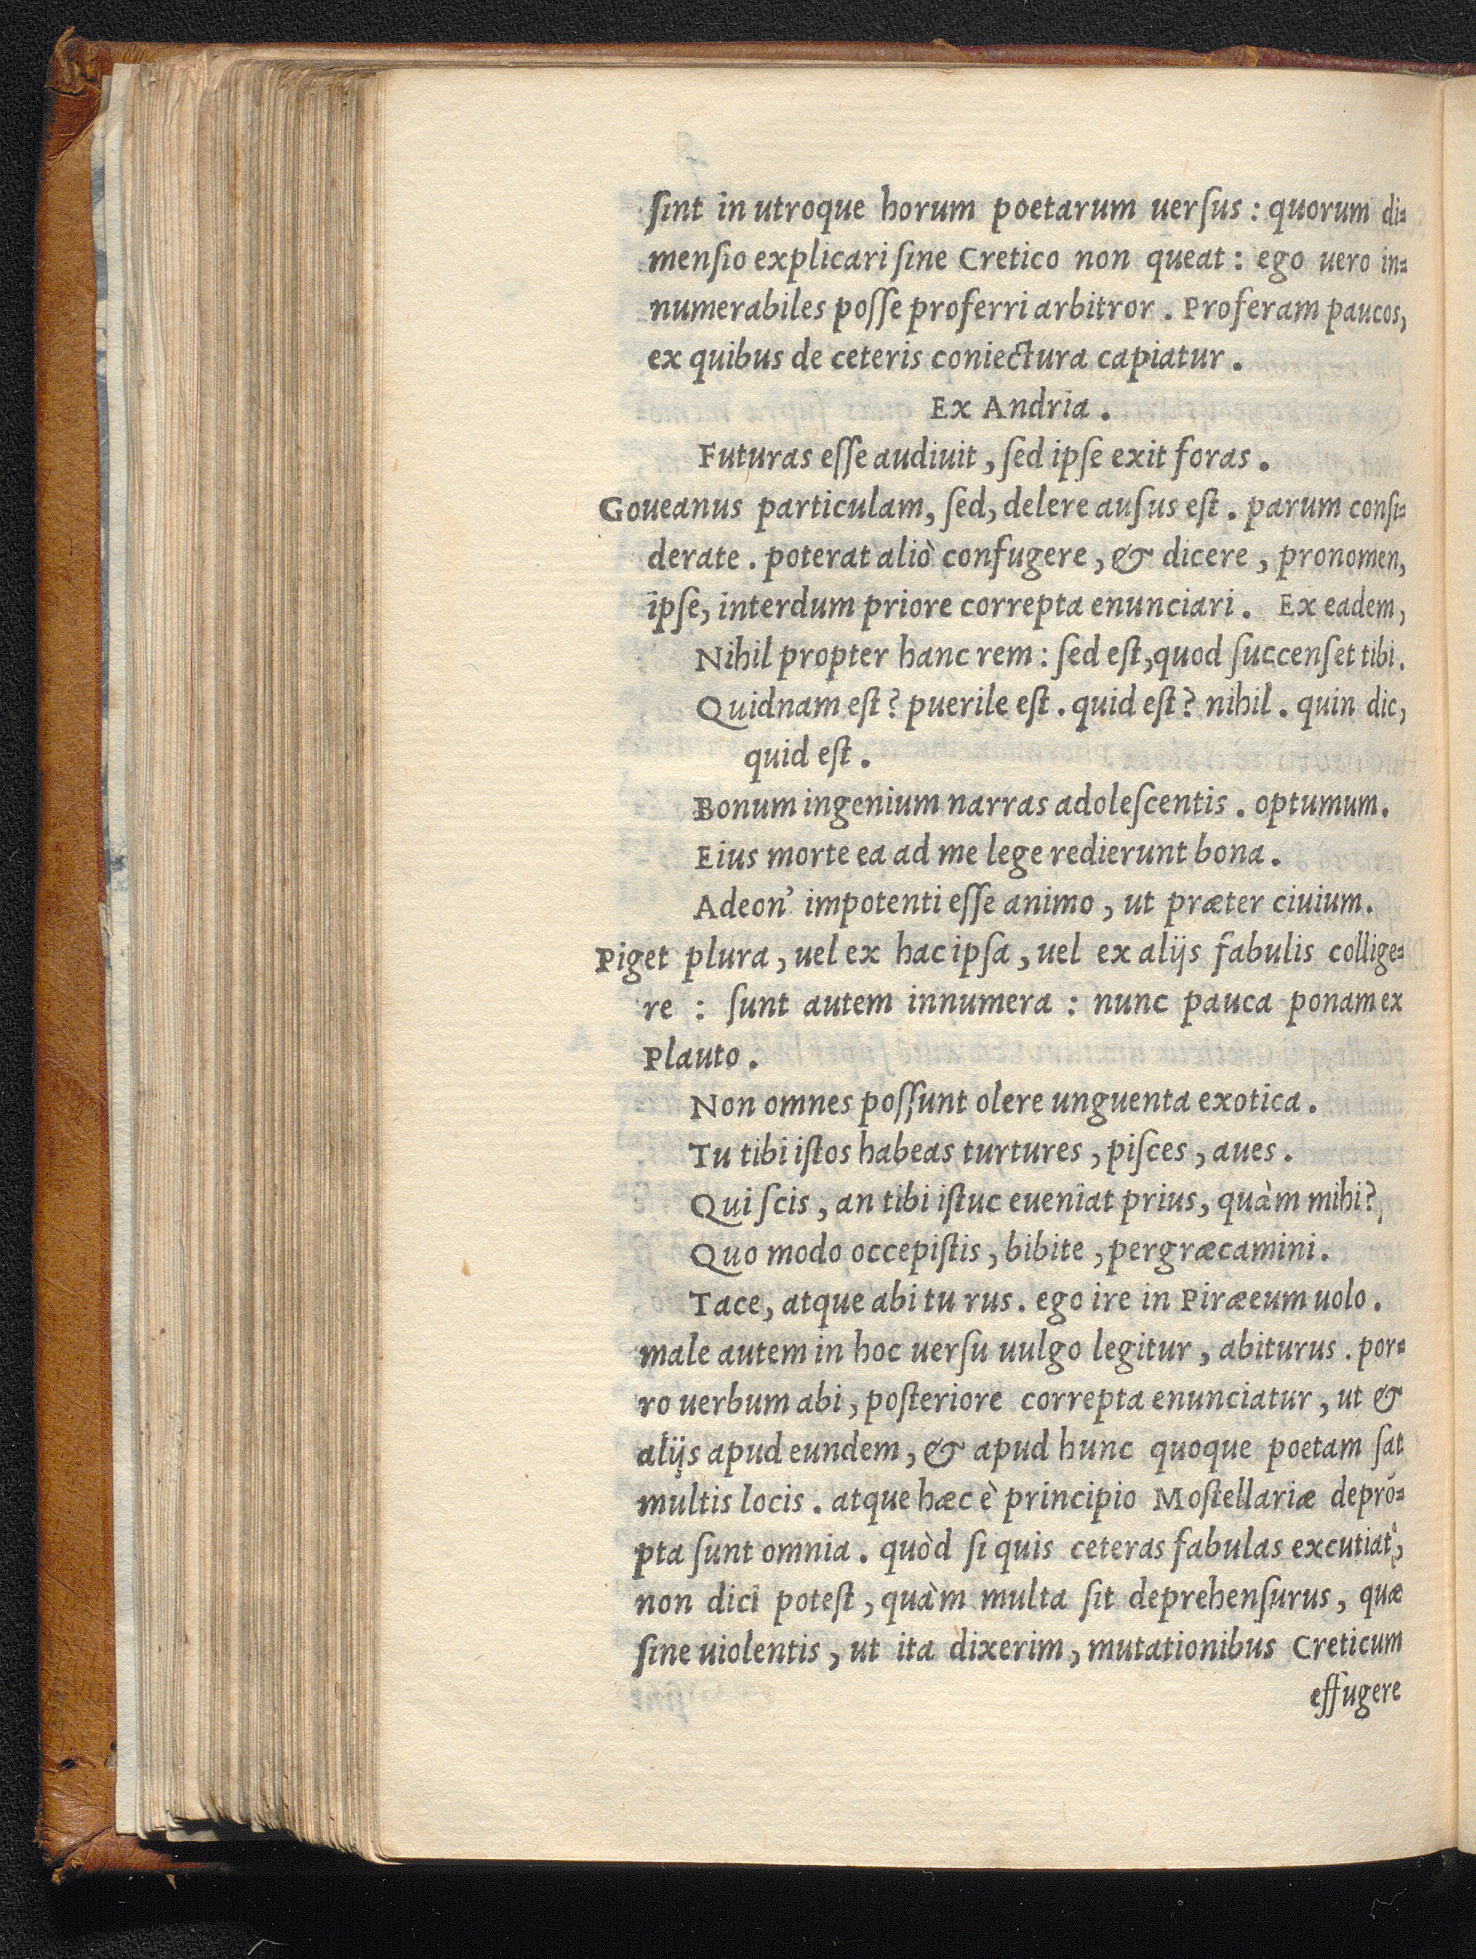 ſint in utroque horum poetarum uerſus : quorum di-
menſio explicari ſine Cretico non queat : ego uero in-
numerabiles poſſe proferri arbitror . Proferam paucos,
ex quibus de ceteris coniectura capiatur .
Ex Andria .
Futuras eſſe audiuit , ſed ipſe exit foras .
Goueanus particulam, ſed, delere auſus eſt . parum conſi-
derate . poterat aliò confugere , & dicere , pronomen,
ipſe, interdum priore correpta enunciari . Ex eadem,
Nihil propter hanc rem : ſed eſt, quod ſuccenſet tibi .
Quidnam eſt? puerile eſt . quid eſt? nihil . quin dic,
quid eſt .
Bonum ingenium narras adoleſcentis . optumum.
Eius morte ea ad me lege redierunt bona .
Adeon’ impotenti eſſe animo , ut præter ciuium.
Piget plura , uel ex hac ipſa , uel ex alijs fabulis collige-
re : ſunt autem innumera : nunc pauca ponam ex
Plauto .
Non omnes poſſunt olere unguenta exotica .
Tu tibi iſtos habeas turtures , piſces , aues .
Qui ſcis , an tibi iſtuc eueniat prius, quàm mihi?
Quo modo occepiſtis , bibite , pergræcamini .
Tace, atque abi tu rus . ego ire in Piræeum uolo .
male autem in hoc uerſu uulgo legitur , abiturus . por-
ro uerbum abi , poſteriore correpta enunciatur , ut &
alijs apud eundem , & apud hunc quoque poetam ſat
multis locis . atque hæc è principio Moſtellariæ depró-
pta ſunt omnia . quòd ſi quis ceteras fabulas excutiat,
non dici poteſt , quàm multa ſit deprehenſurus , quæ
ſine uiolentis , ut ita dixerim , mutationibus Creticum
effugere